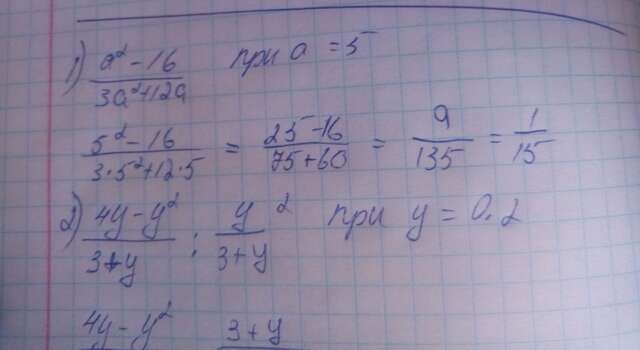 1) a² - 16 / 3a² + 12a при a = 5
5² - 16 / 3·5² + 12·5 = 25 - 16 / 75 + 60 = 9 / 135 = 1 / 15
2) 4y - y² / 3 + y : y² / 3 + y при y = 0.2
4y - y² 3 + y